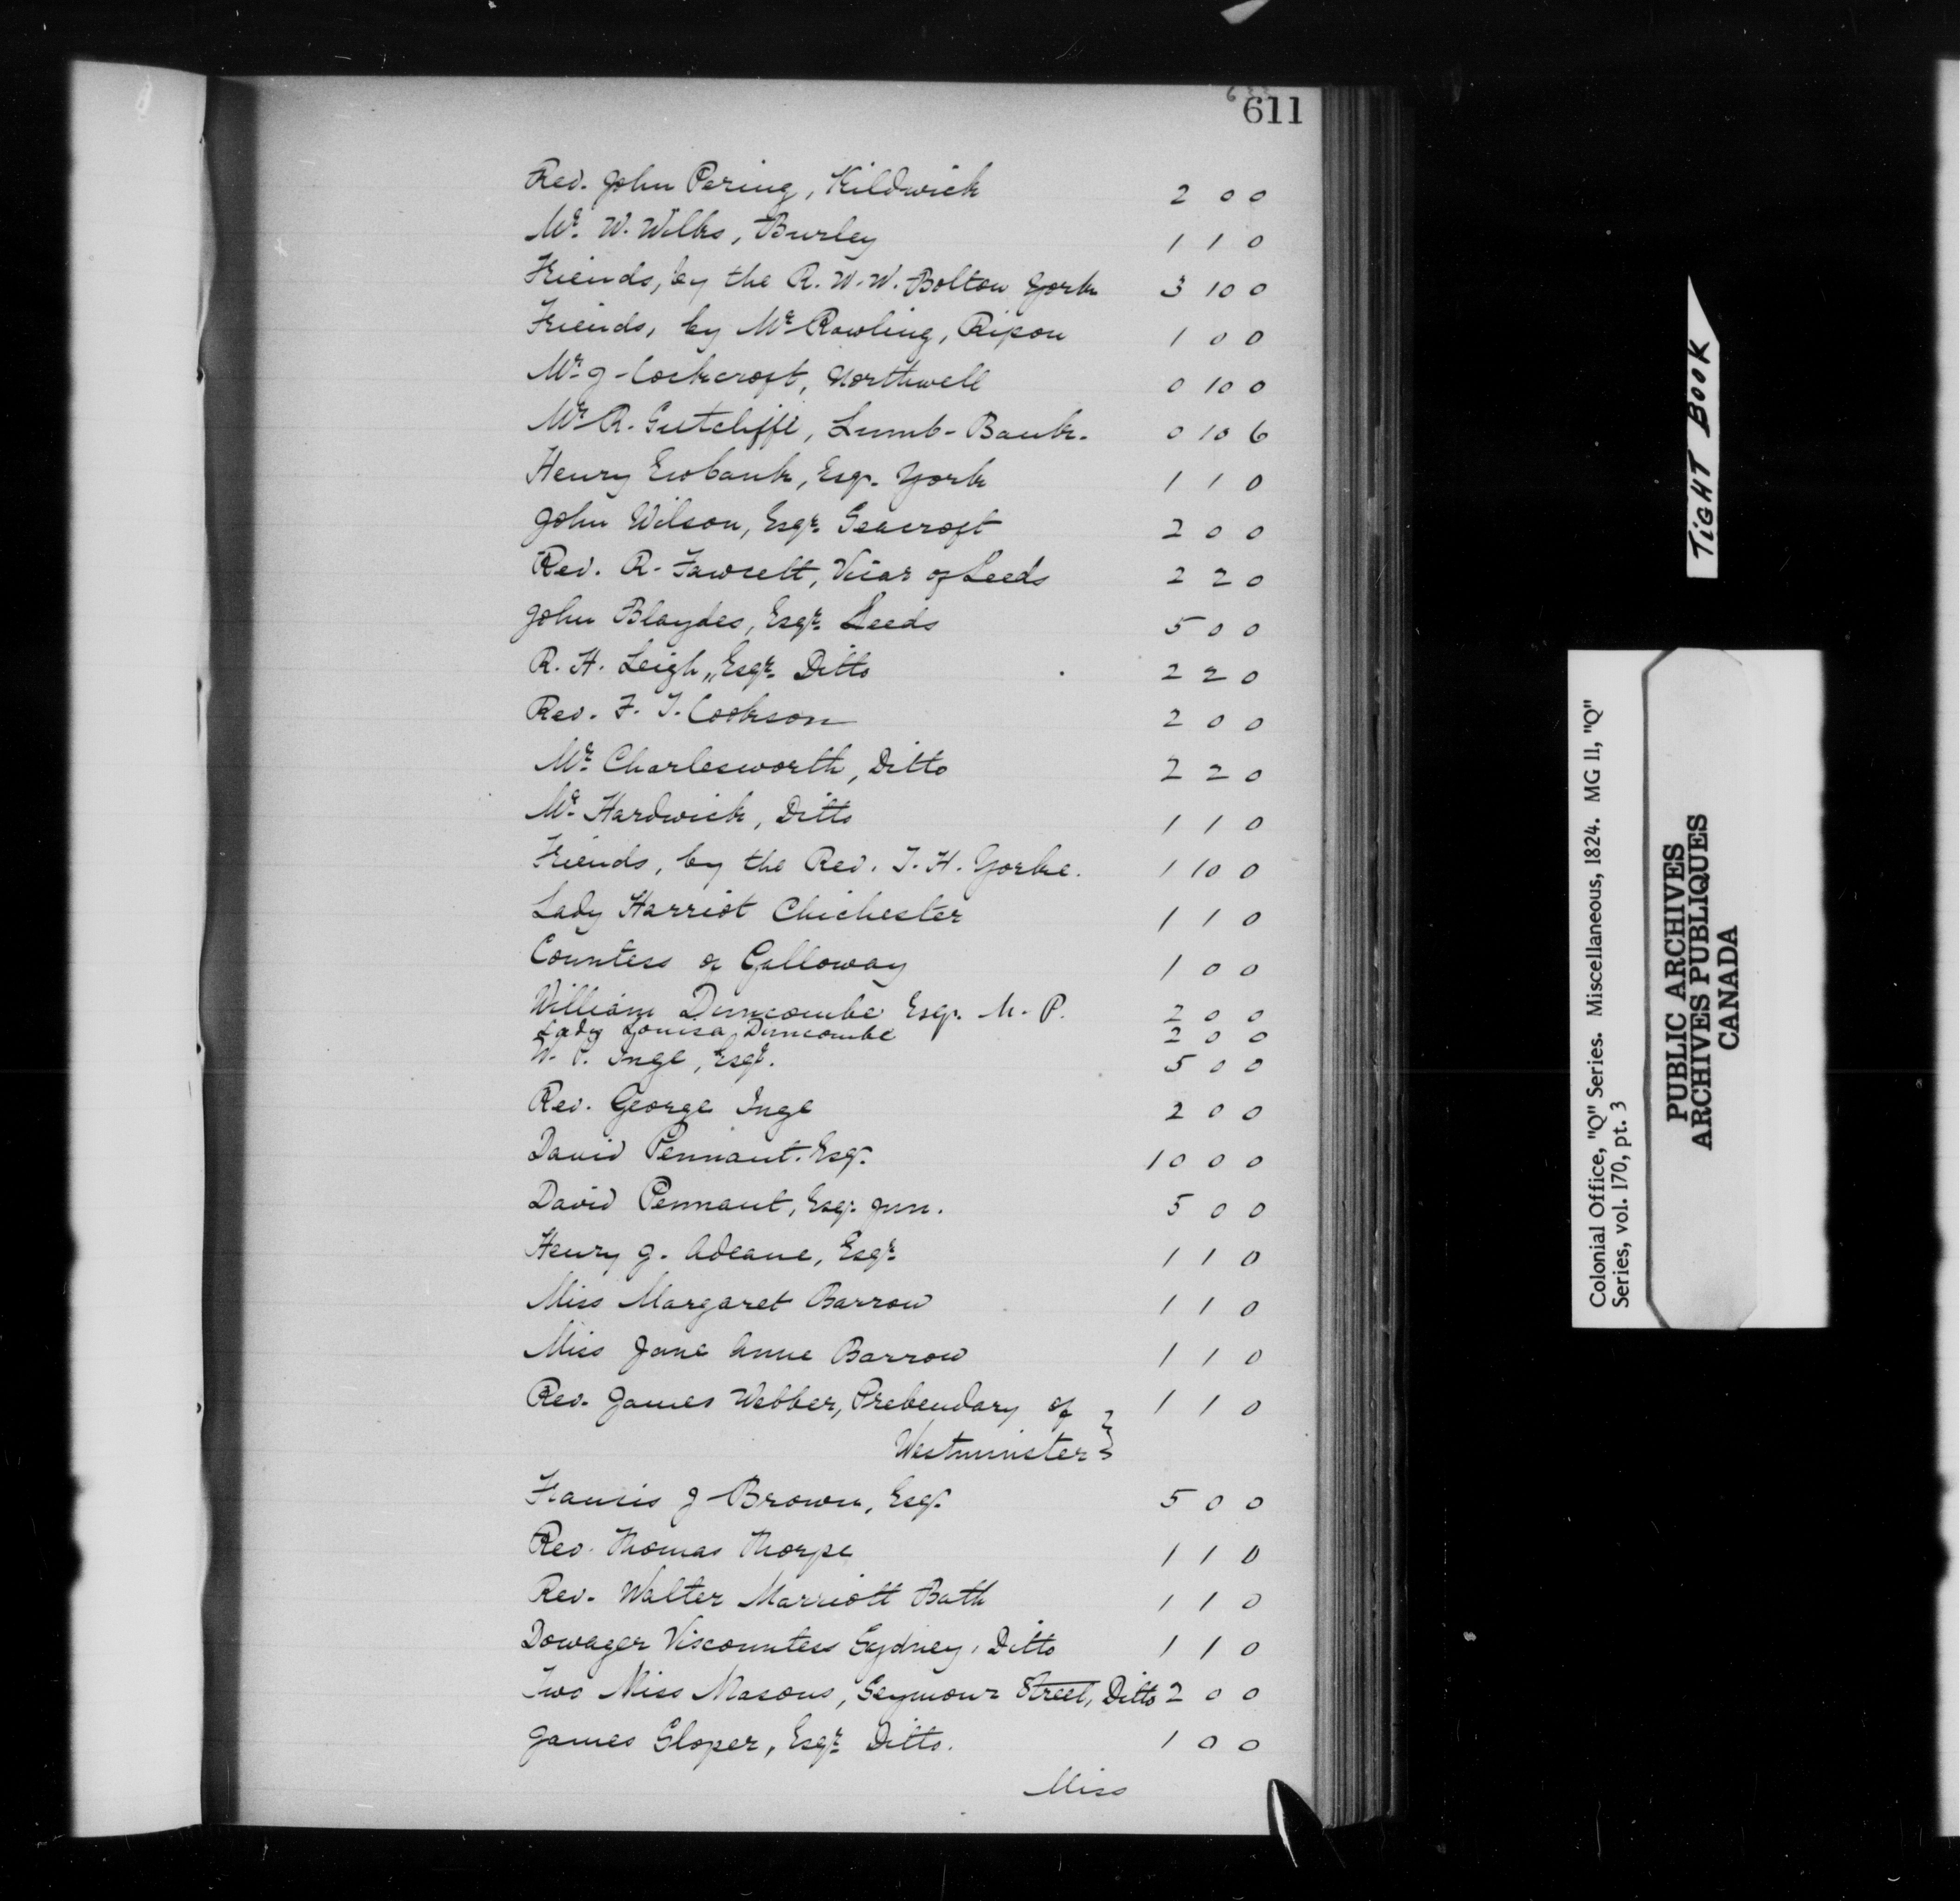 611
Rev. John Pering, Kildwick 2 0 0
Mr. W. Wilks, Burley 1 1 0
Friends, by the R. W. W. Bolton York 3 10 0
Friends, by Mr Rawling, Ripon 1 0 0
Mr. J. Cockcroft, Northwell 0 10 0
Mr R. Sutcliffe, Lumb-Bank. 0 10 6
Henry Ewbank, Esqr. York 1 1 0
John Wilson, Esqr. Seacroft 2 0 0
Rev. R. Fawcett, Vicar of Leeds 2 2 0
John Blaydes, Esqr. Leeds 5 0 0
R. H. Leigh, Esqr. Ditto 2 2 0
Rev. F. T. Cookson 2 0 0
Mr. Charlesworth, Ditto 2 2 0
Mr. Hardwick, Ditto 1 1 0
Friends, by the Rev. T. H. Yorke. 1 10 0
Lady Harriot Chichester 1 1 0
Countess of Galloway 1 0 0
William Duncombe Esqr. M. P. 2 0 0
Lady Louisa Duncombe 2 0 0
W. P. Inge, Esqr. 5 0 0
Rev. George Inge 2 0 0
David Pennant. Esqr. 10 0 0
David Pennant, Esqr. jun. 5 0 0
Henry J. Adeane, Esqr. 1 1 0
Miss Margaret Barrow 1 1 0
Miss Jane Anne Barrow 1 1 0
Rev. James Webber, Prebendary of 1 1 0
Westminster
Francis J Brown, Esqr. 5 0 0
Rev. Thomas Thorpe 1 1 0
Rev. Walter Marriott Bath 1 1 0
Dowager Viscountess Sydney, Ditto 1 1 0
Two Miss Masons, Seymour Street, Ditto 2 0 0
James Sloper, Esqr. Ditto. 1 0 0
Miss
TIGHT BOOK
Colonial Office, "Q" Series. Miscellaneous, 1824. MG 11, "Q"
Series, vol. 170, pt. 3
PUBLIC ARCHIVES
ARCHIVES PUBLIQUES
CANADA